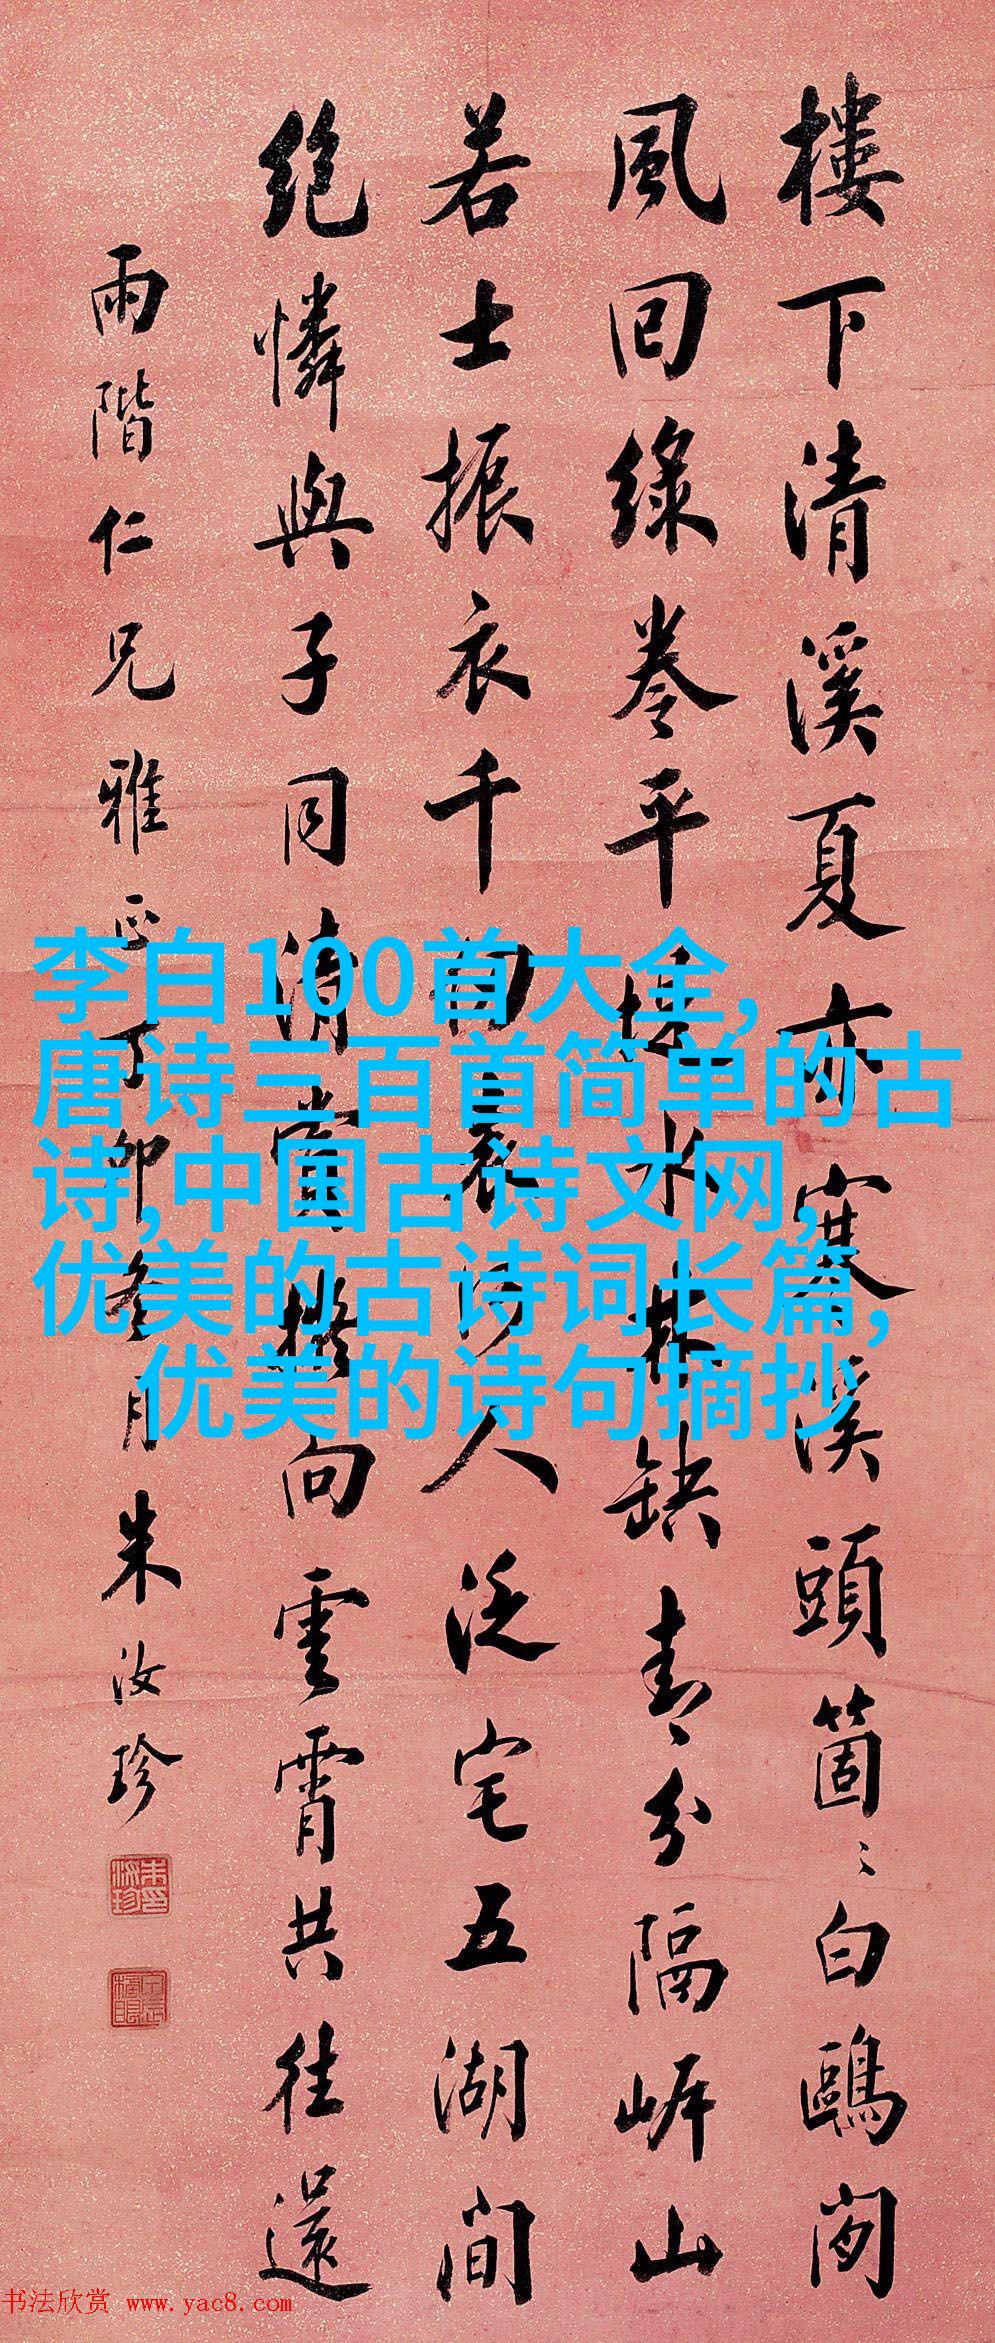 樓下清溪夏亦寒溪頭箇〻白鷗閑
風回綠卷平堤水林缺青〻分隔岸山
若士振衣千仞表何人泛宅五湖間
絶憐與子同清賞擬向雲霄共往還
雨階仁兄雅正丁卯冬月朱汝珍
李白100首大全,
唐诗三百首简单的古
诗,中国古诗文网,
优美的古诗词长篇,
优美的诗句摘抄
书法欣赏 www.yac8.com